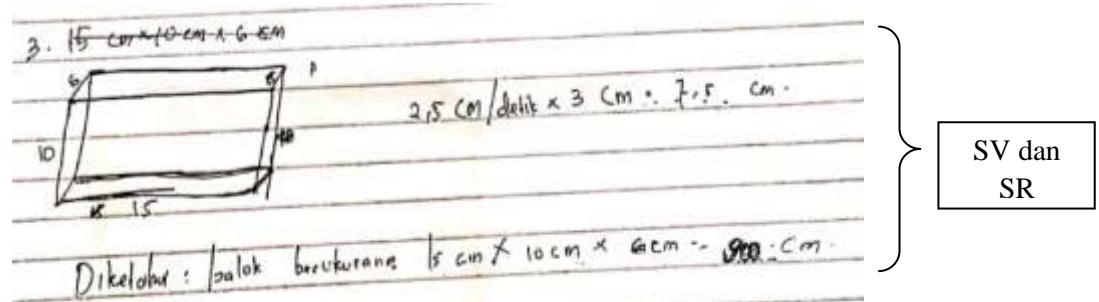 3. 15 cm x 10 cm x 6 cm
6
10
15
2,5 cm/detik x 3 cm = 7,5 cm.
Diketahui : balok berukuran 15 cm x 10 cm x 6 cm = 900 cm.
SV dan
SR